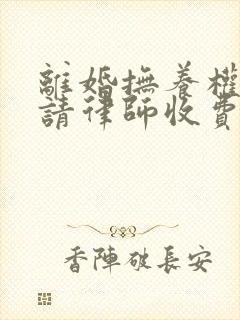 離婚撫養權
請律師收費
香陣破長安